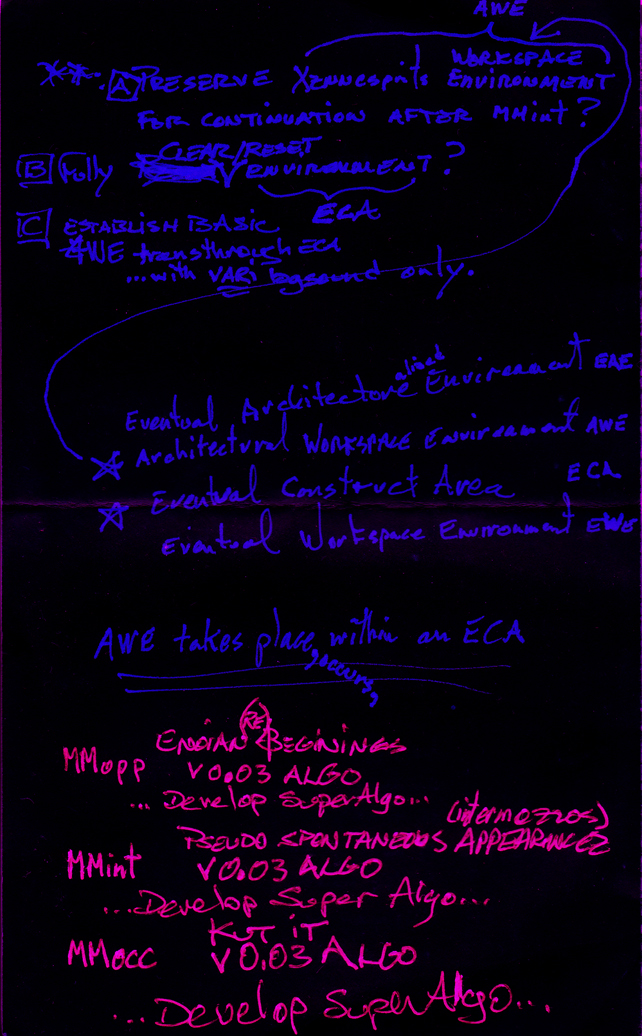 AWE
WORKSPACE
**. A PRESERVE Xennesprits ENVIRONMENT
FOR CONTINUATION AFTER MMint?
CLEAR/RESET
B Fully ENVIRONMENT?
ECA
C ESTABLISH BASIC
AWE transthrough ECA
...with VARi bgsound only.
Eventual Architecture alized Environment EAE
Architectural WORKSPACE Environment AWE
Eventual Construct Area ECA
Eventual Workspace Environment EWE
AWE takes place, within an ECA
occurs,
(RE)
ENDIAN BEGININGS
MMopp V0.03 ALGO
... Develop SuperAlgo...
(intermezzos)
PSEUDO SPONTANEOUS APPEARANCEZ
MMint V0.03 ALGO
...Develop Super Algo...
KUT iT
MMocc V0.03 ALGO
...Develop SuperAlgo...